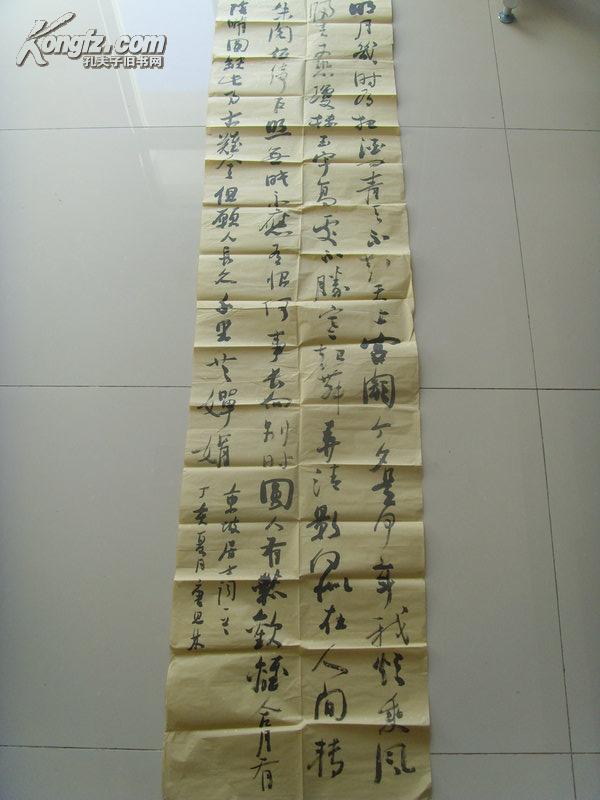 明月几时有把酒问青天不知天上宫阙今夕是何年我欲乘风
归去又恐琼楼玉宇高处不胜寒起舞弄清影何似在人间转
朱阁低绮户照无眠不应有恨何事长向别时圆人有悲欢离合月有
阴晴圆缺此事古难全但愿人长久千里共婵娟
东坡居士词一首
丁亥夏月
Kongfz.com
孔夫子旧书网